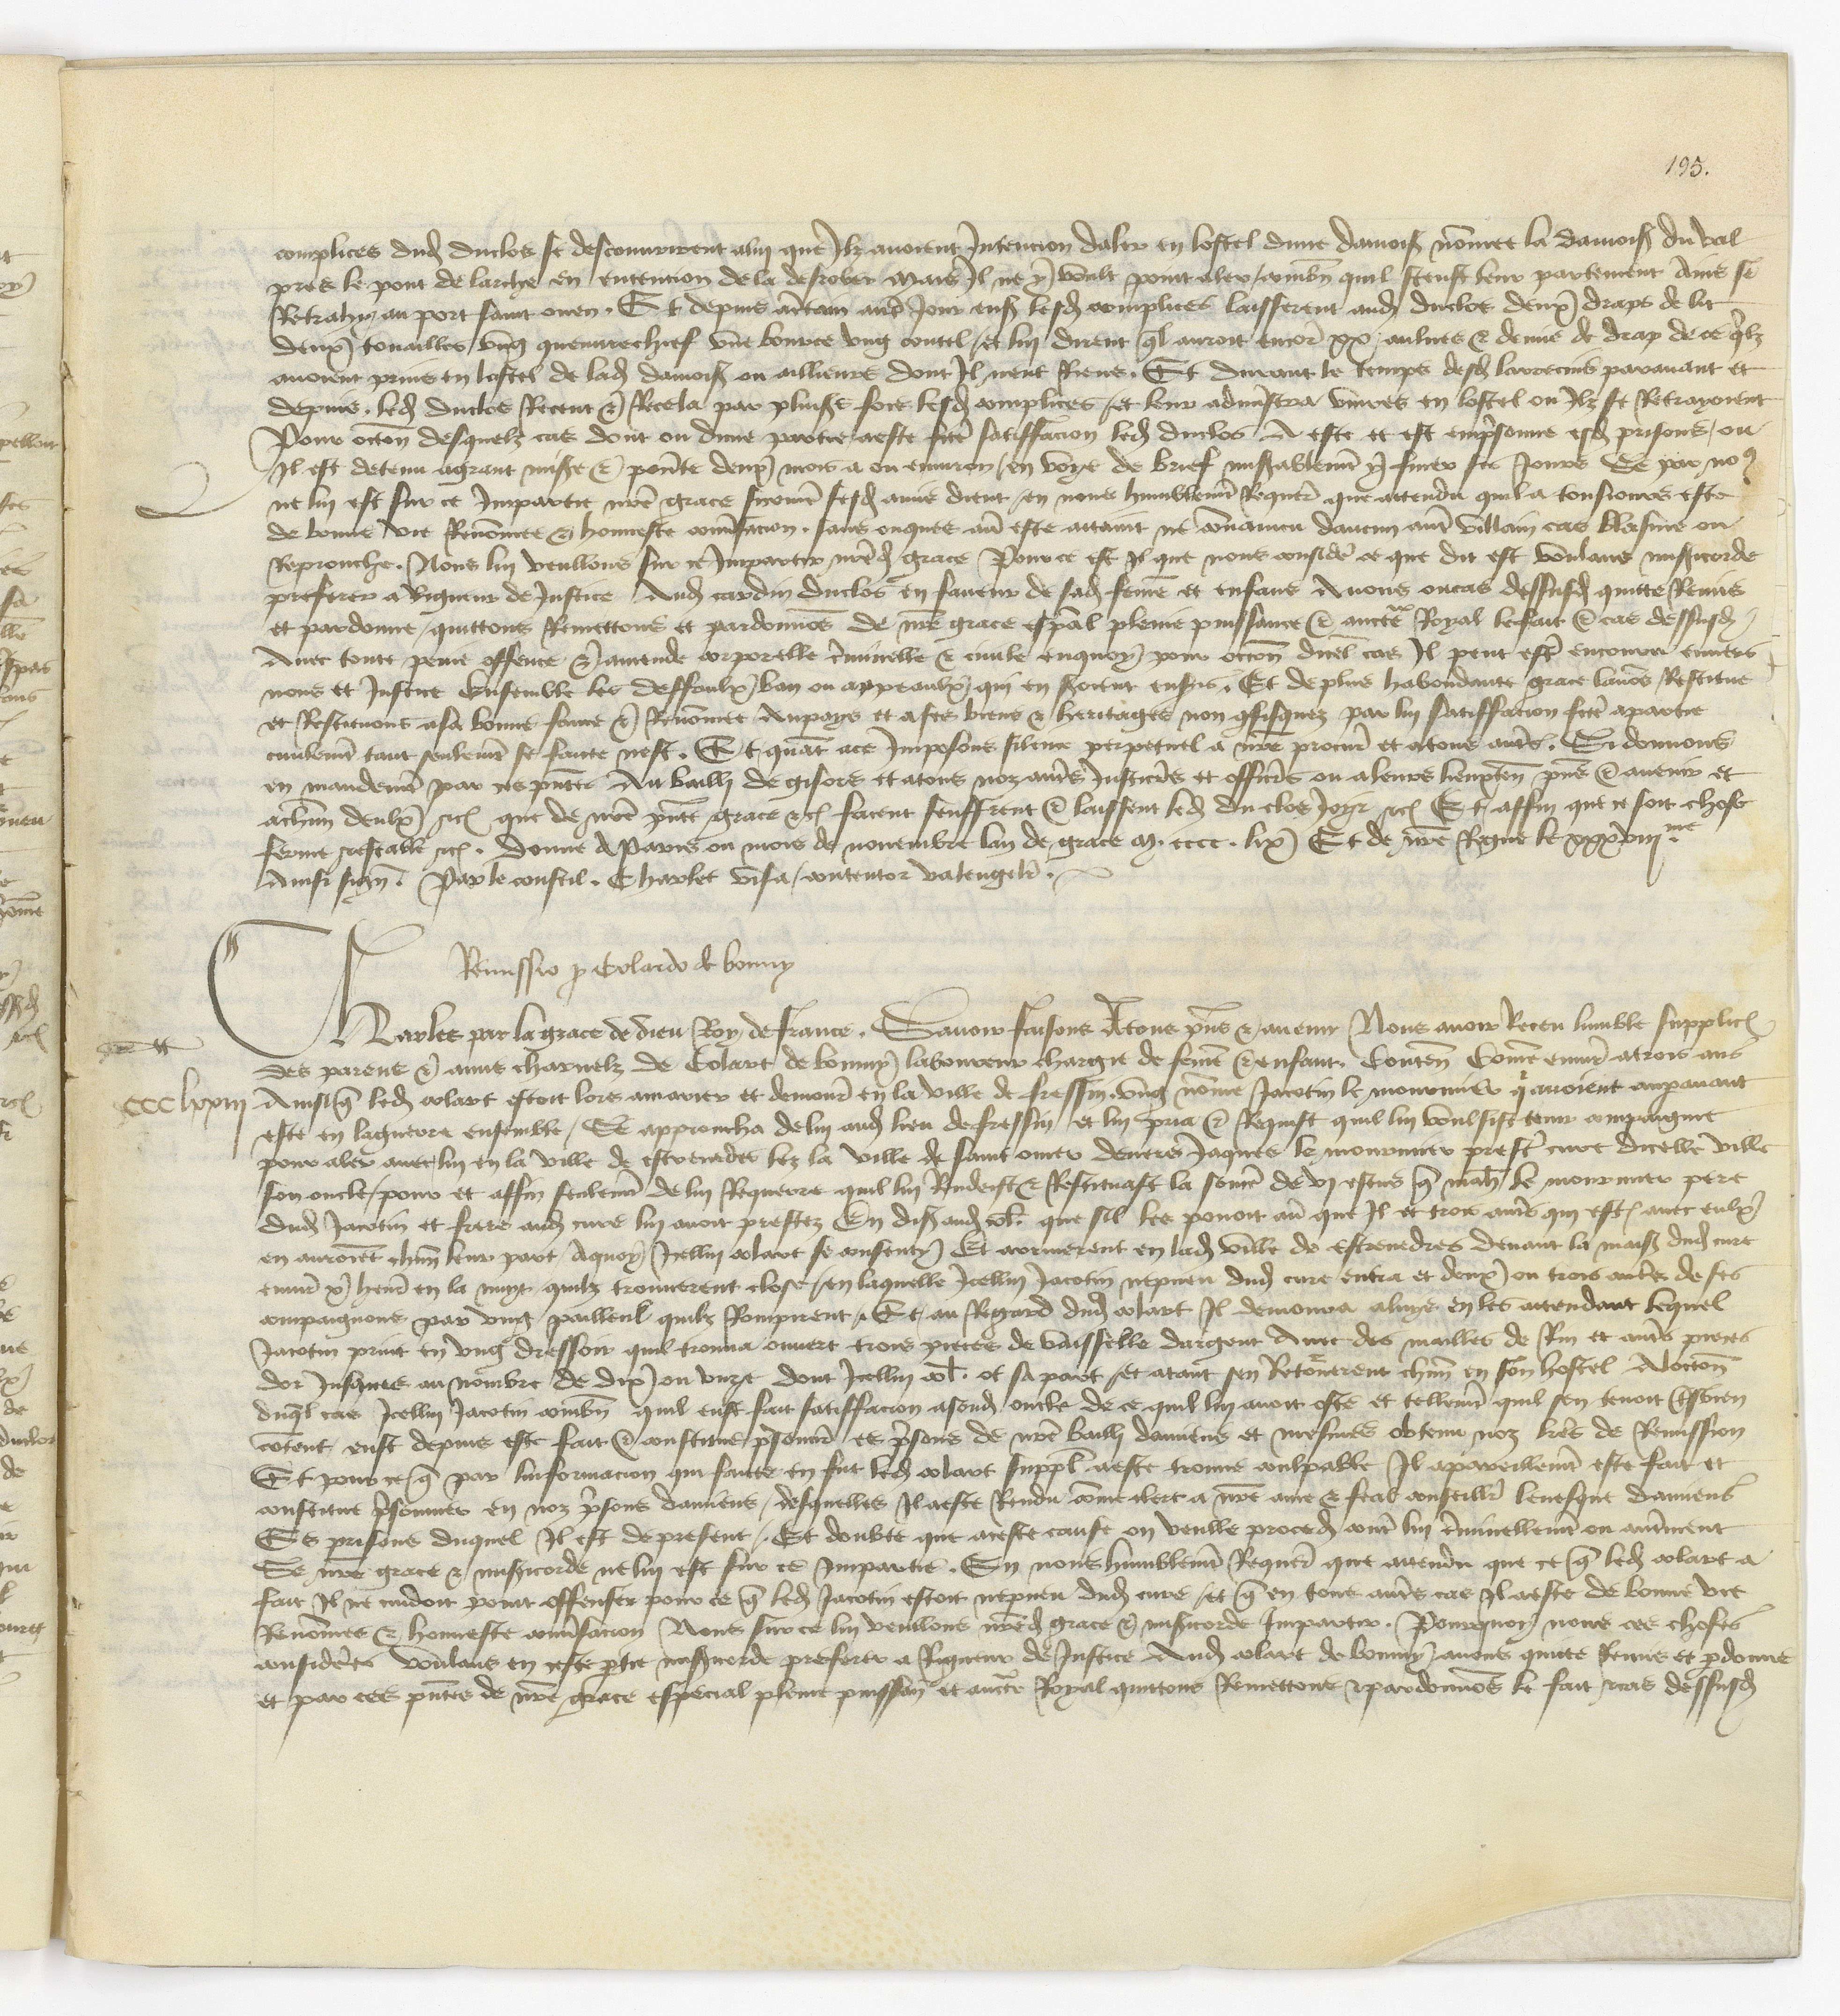 195.
complices dud duclos se descouvrirent a luy que Ilz avoient Intencion daler en lostel dune damois nomee la damois du val
pres le pont de larche en entencion de la desrober Mais Il ne y voult point aler / combn quil sceust leur partement Ains se
Retrahy au port saint ouen. Et depuis certain autre Jour ens lesd complices laisserent aud duclos deux draps de lit
deux touailles / ung queuvrechief une bource ung coutel / et luy dirent ql auroit encor xx aulnes & demie de drap de ce qlz
avoient prins en lostel de lad damois ou ailleurs dont Il neut Riens. Et durant le temps desd larrecins paravant et
depuis. led duclos Receut & Recela par pluss fois lesd complices / et leur admistra vivres en lostel ou Ilz se Retrayoient
Pour occon desquelz cas dont ou dune partie a este fcte satiffacion led duclos A este et est emprisonne esd prisons / ou
Il est detenu a grant mise & povrete deux mois a ou environ / en voye de brief misablemt y finer ses Jours Se par no9
ne luy est sur ce Impartie nre grace sicomme sesd amis dient / en nous humblemt Requer que attendu quil a tousiours este
de bonne vie Renomee & honneste conversacion. sans onques avoir este attaint ne convaincu daucun autre villain cas blasme ou
Reprouche. Nous luy veullons sur ce Impartir nred grace Pour ce est Il que nous consider ce que dit est voulans misicorde
preferer a Rigueur de Justice Aud cardin duclos en faveur de sad feme et enfans Avons ou cas dessusd quitte Remis
et pardonne / quittons Remettons et pardonnos de nre grace espal plenie puissance & auctte Royal le fait & cas dessusd
Avec toute peine offence & amende corporelle criminelle & civile en quoy pour occon dicel cas Il peut estre encouru envers
nous et Justice Ensemble les deffaulx ban ou appeaulx qui en seroient ensuis. Et de plus habondante grace lavos Restitue
et Restituons a sa bonne fame & Renomee Au pays et a ses biens & heritages non qfisquez par luy satiffacion fcte a partie
civilemt tant seulemt se faicte nest. Et quat a ce Imposons silence perpetuel a nre procur et a tous autres. Si donnons
en mandemt par ces pntes Au bailli de gisors et a tous noz autres Justiciers et officiers ou a leurs lieuxten pns & avenir et
a chun deulx sicome que de nre pnte grace &c facent seuffrent & laissent led du clos Joyr &c Et affin que ce soit chose
ferme & estable &c. Donne A Paris ou mois de novembre lan de grace M. cccc. lix Et de nre Regne le xxxviii me
Ainsi sign. Par le conseil. Charlet visa / contentor valengelr.
Remissio p Colardo de bonny
ccclxxiii
Charles par la grace de dieu Roy de france. Savoir faisons A tous pns & avenir Nous avoir Receu lumble supplic
des parens & amis charnelz de Colart de bonny laboureur charge de feme & enfant. Conten Come envir a trois ans
Ainsi q led colart estoit lors a marier et demour en la ville de fressin. ung nome Jacotin le mounnier q avoient auparavant
este en la guerre ensemble / Se approucha de luy aud lieu de fressin et luy pria & Requist quil luy voulsist tenir compaignie
pour aler avec luy en la ville de estreuedes lez la ville de saint omer devers Jaques le mounnier prestre cure dicelle ville
son oncle / pour et affin seulemt de luy Requerre quil luy Rendeist & Restituast la some de vj escus q mah le mounnier pere
dud Jacotin et frere aud cure luy avoit prestez En dis aud col. que sil les povoit avoir que Il et trois autres qui est avec eulx
en auroiet chun leur part A quoy Icellui colart se consenty Et arriverent en lad ville de estreuedres devant la mais dud cure
envir x heures en la nuyt quilz trouverent close / en laquelle Icelluy Jacotin nepveu dud cure entra et deux ou trois autres de ses
compaignons par ung pailleul quilz Rompirent. Et au Regard dud colart Il demoura a luys en les attendant lequel
Jacotin print en ung dressoir quil trouva ouvert trois pieces de vaisselle dargent Avec des mailles de Rin et autres pieces
dor Jusques au nombre de dix ou unze dont Icelluy col. ot sa part / et atant sen Retourerent chun en son hostel A loccon
duql cas Icelluy Jacotin combn quil eust fait satiffacion a sond oncle de ce quil luy avoit oste et tellemt quil sen tenoit & tient
cotent eust depuis este fait & constitue prisonnier es prisons de nre bailli damiens et mesmes obtenu noz lres de Remission
Et pour ce q par linformacion qui faicte en fut led colart suppl a este trouve coulpable Il a pareillemt este fait et
constitue prisonnier en noz prisons damiens / desquelles Il a este Rendu come clerc a nre ame & feal conseiller levesque damiens
Es prisons duquel Il est de present. Et doubte que a ceste cause on veulle proceder contre luy criminellemt ou autrement
Se nre grace & misicorde ne luy est sur ce Impartie. En nous humblemt Requer que attendu que ce q led colart a
fait Il ne cuidoit point offenser pour ce q led Jacotin estoit nepveu dud cure / et q en tous autres cas Il a este de bonne vie
Renomee & honneste conversacion Nous sur ce luy veullons nred grace & misicorde Impartir. Pourquoy nous ces choses
considerees voulans en ceste ptie misicorde preferer a Rigueur de Justice Aud colart de bonny avons quitte Remis et pdonne
et par ces pntes de nre grace especial plenie puissan et auctr Royal quittons Remettons & pardonnos le fait & cas dessusd